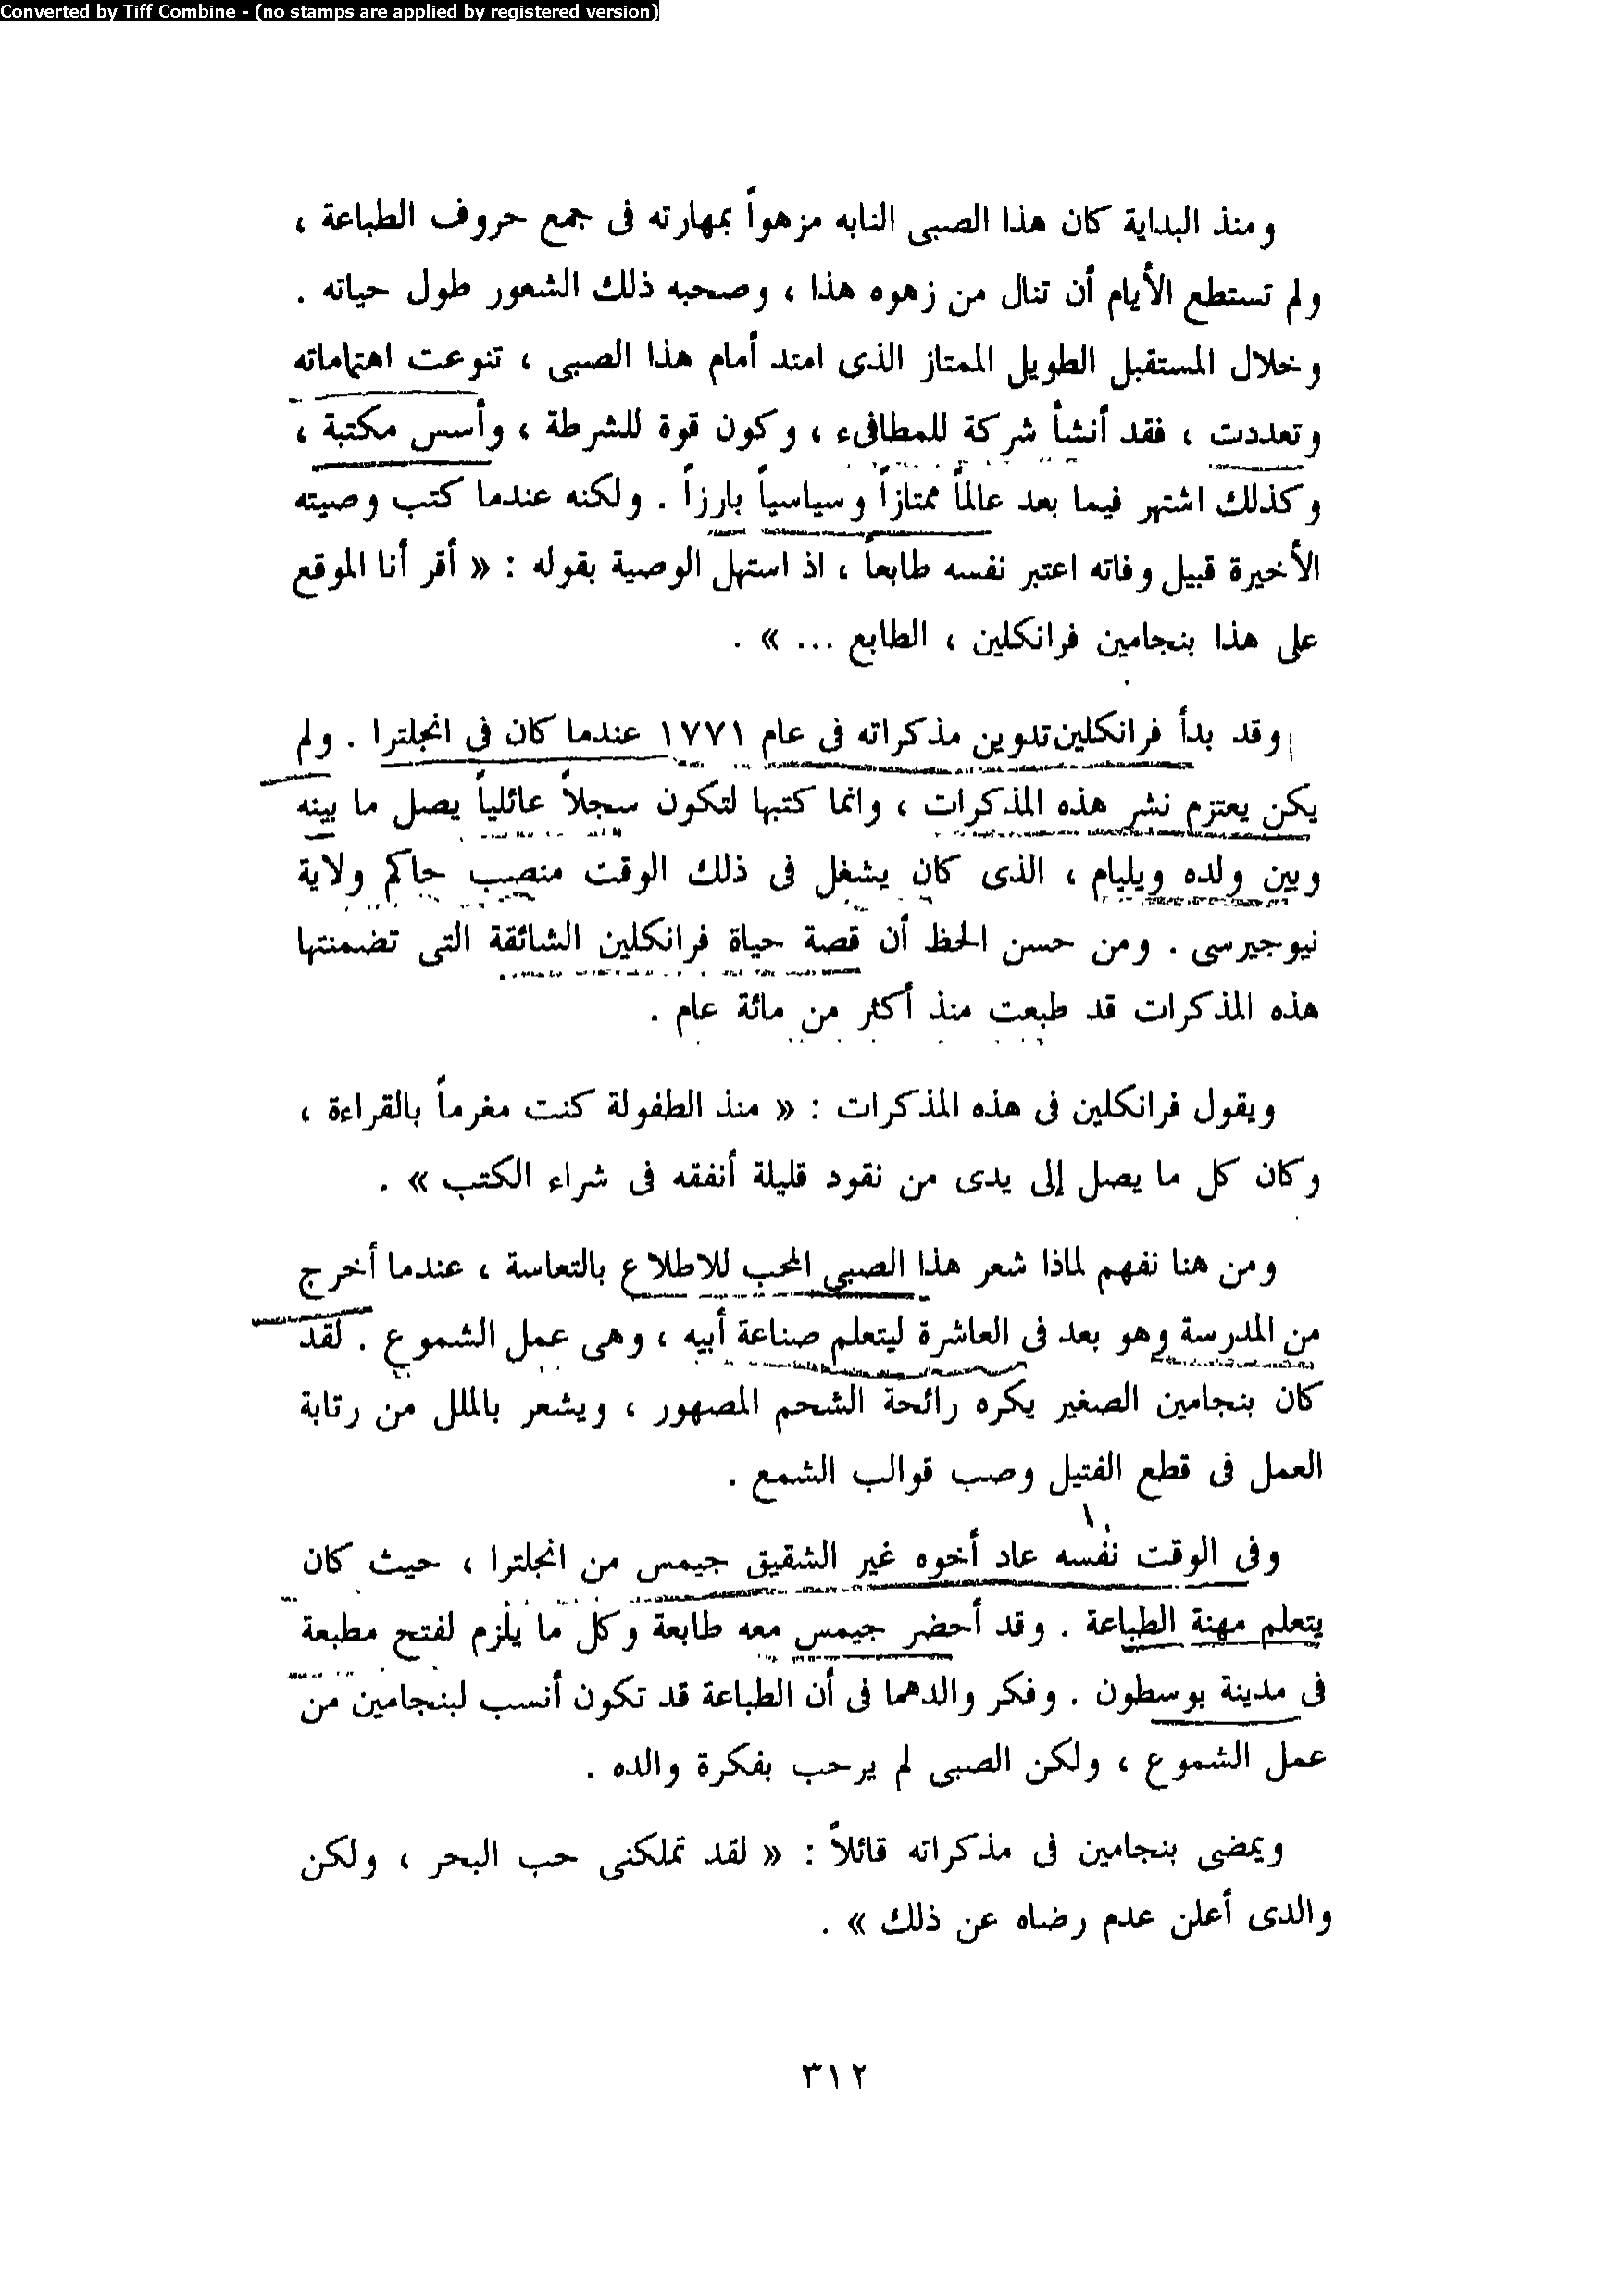 Converted by Tiff Combine - (no stamps are applied by registered version)
ومنذ البداية كان هذا الصبى النابه مزهواً بمهارته فى جمع حروف الطباعة ،
ولم تستطع الأيام أن تنال من زهوه هذا ، وصحبه ذلك الشعور طول حياته .
وخلال المستقبل الطويل الممتاز الذى امتد أمام هذا الصبى ، تنوعت اهتماماته
وتعددت ، فقد أنشأ شركة للمطافىء ، وكون قوة للشرطة ، وأسس مكتبة ،
وكذلك اشتهر فيما بعد عالماً ممتازاً وسياسياً بارزاً . ولكنه عندما كتب وصيته
الأخيرة قبيل وفاته اعتبر نفسه طابعاً ، اذ استهل الوصية بقوله : « أقر أنا الموقع
على هذا بنجامين فرانكلين ، الطابع ... » .
وقد بدأ فرانكلين تدوين مذكراته فى عام ١٧٧١ عندما كان فى انجلترا . ولم
يكن يعتزم نشر هذه المذكرات ، وانما كتبها لتكون سجلاً عائلياً يصل ما بينه
وبين ولده ويليام ، الذى كان يشغل فى ذلك الوقت منصب حاكم ولاية
نيوجيرسى . ومن حسن الحظ أن قصة حياة فرانكلين الشائقة التى تضمنتها
هذه المذكرات قد طبعت منذ أكثر من مائة عام .
ويقول فرانكلين فى هذه المذكرات : « منذ الطفولة كنت مغرماً بالقراءة ،
وكان كل ما يصل إلى يدى من نقود قليلة أنفقه فى شراء الكتب » .
ومن هنا نفهم لماذا شعر هذا الصبى المحب للاطلاع بالتعاسة ، عندما أخرج
من المدرسة وهو بعد فى العاشرة ليتعلم صناعة أبيه ، وهى عمل الشموع . لقد
كان بنجامين الصغير يكره رائحة الشحم المصهور ، ويشعر بالملل من رتابة
العمل فى قطع الفتيل وصب قوالب الشمع .
وفى الوقت نفسه عاد أخوه غير الشقيق جيمس من انجلترا ، حيث كان
يتعلم مهنة الطباعة . وقد أحضر جيمس معه طابعة وكل ما يلزم لفتح مطبعة
فى مدينة بوسطون . وفكر والدهما فى أن الطباعة قد تكون أنسب لبنجامين من
عمل الشموع ، ولكن الصبى لم يرحب بفكرة والده .
ويمضى بنجامين فى مذكراته قائلاً : « لقد تملكنى حب البحر ، ولكن
والدى أعلن عدم رضاه عن ذلك » .
٣١٢